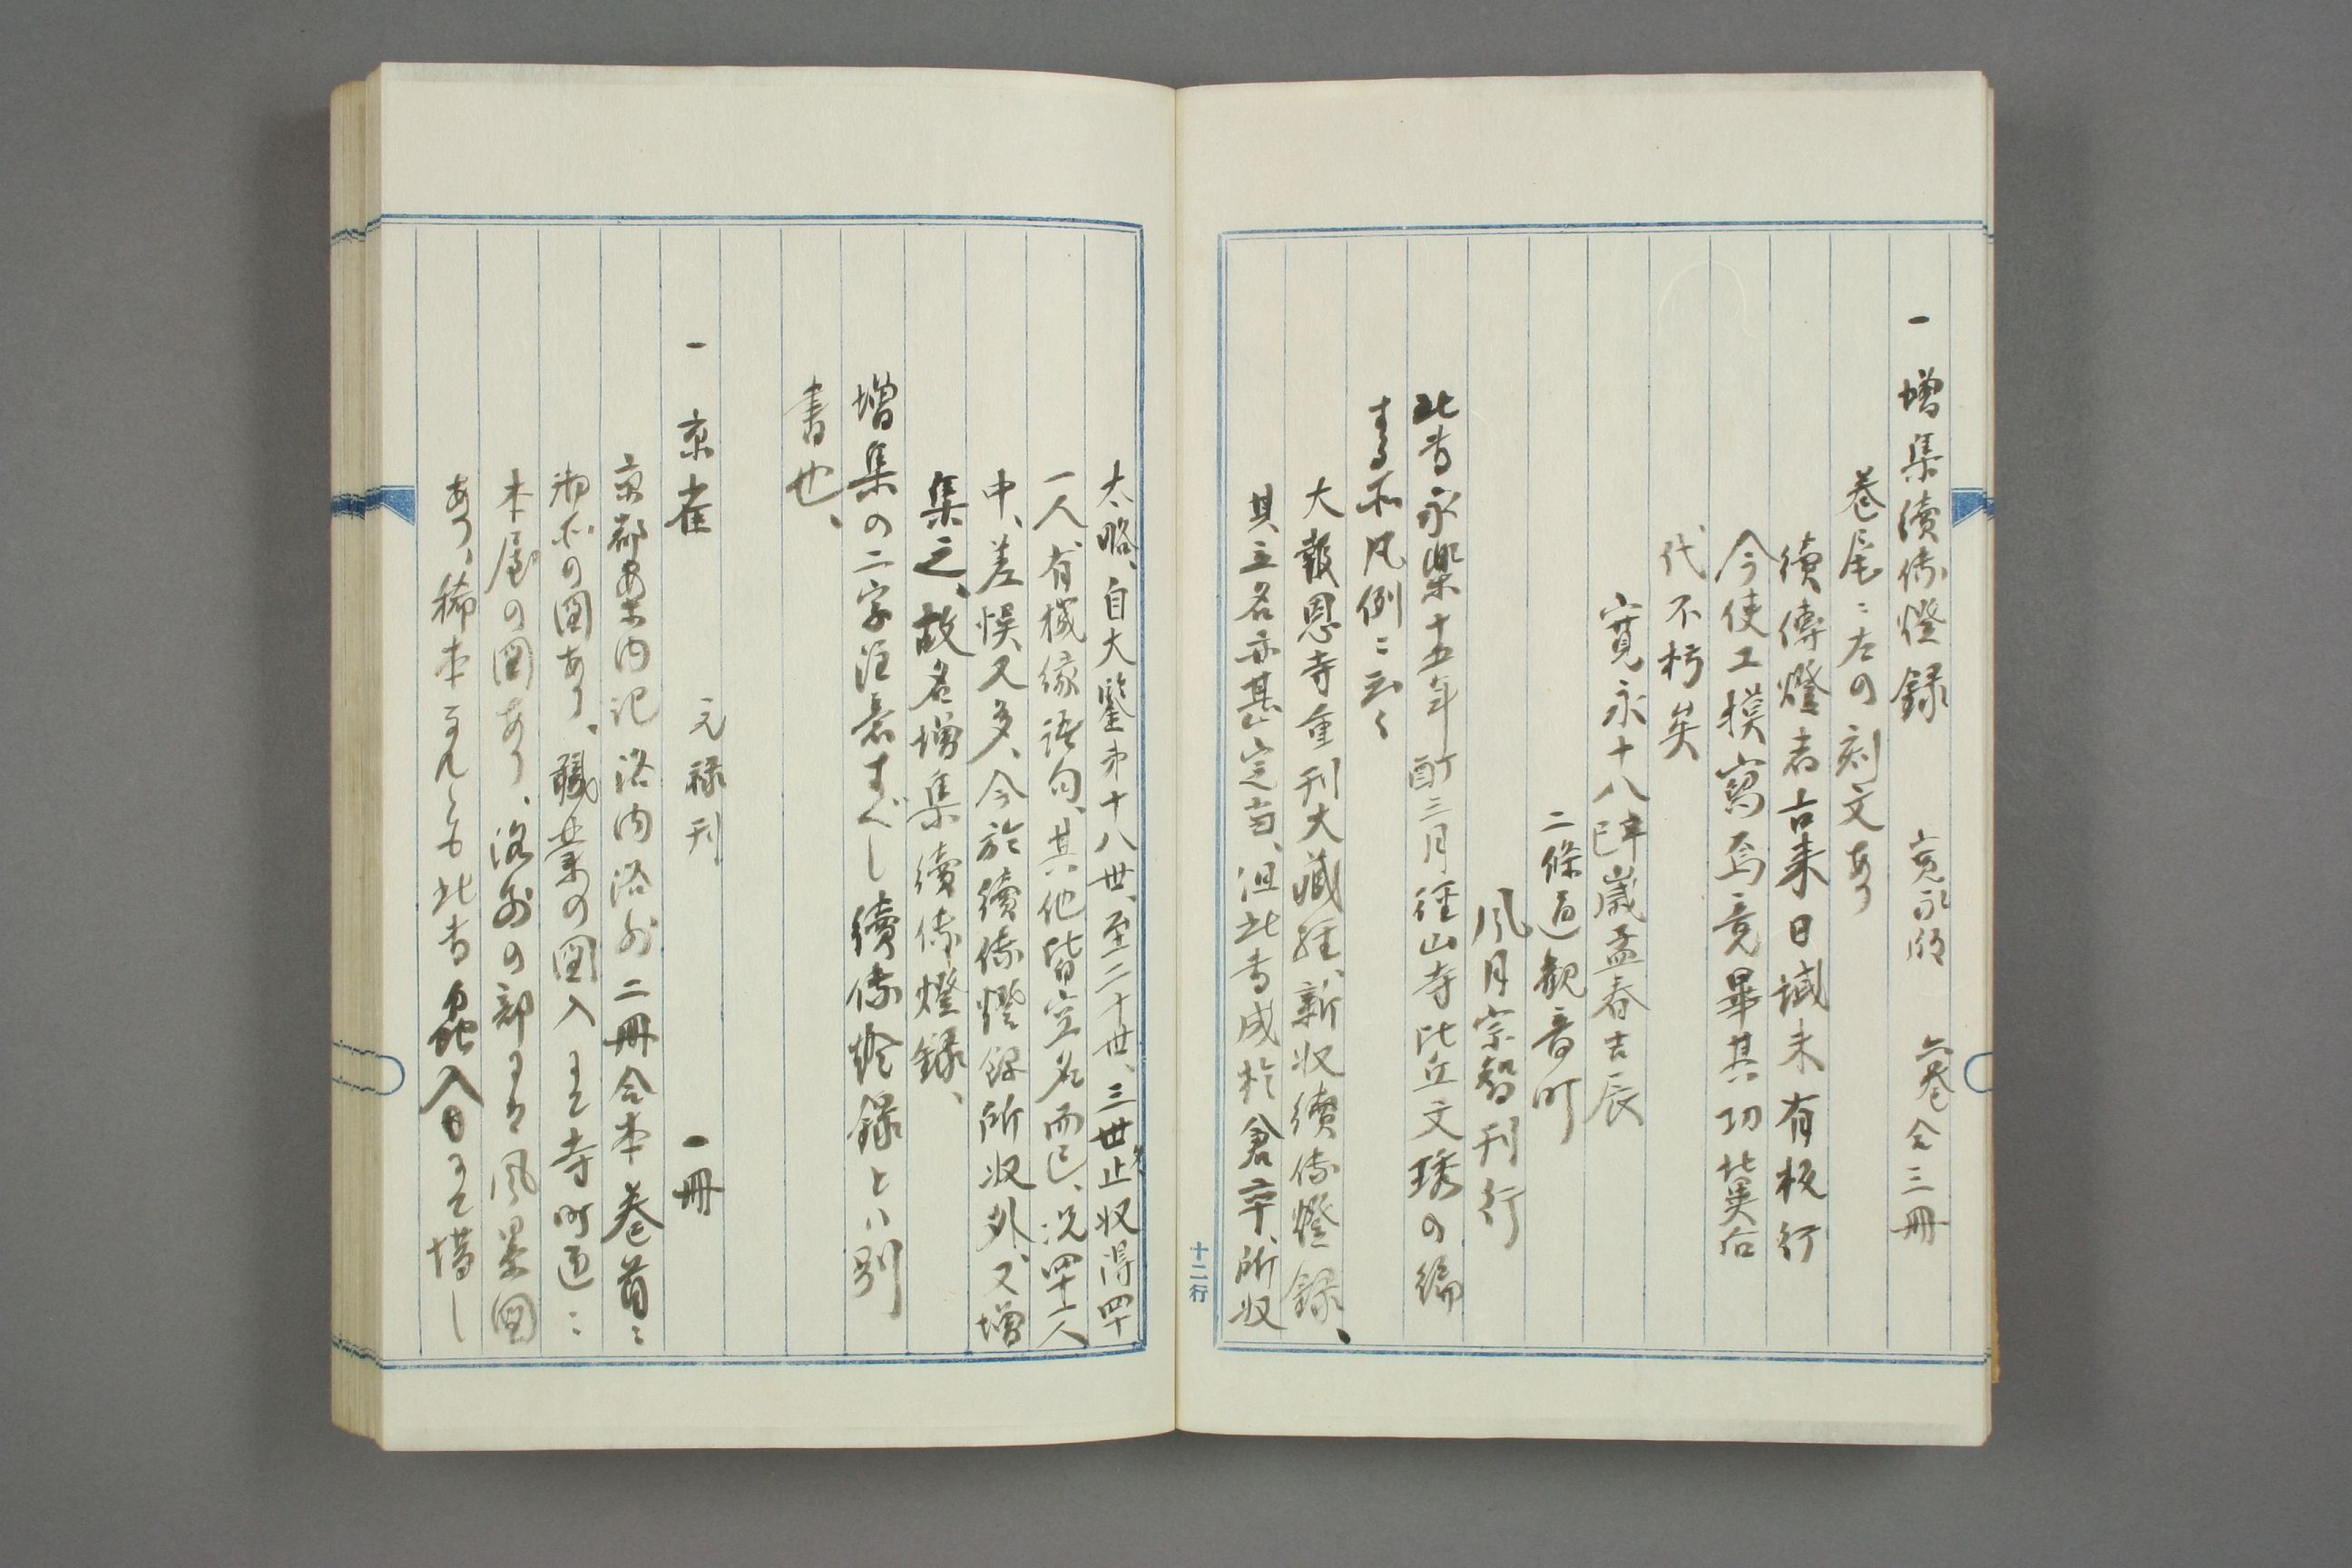 一 增集續傳燈錄 寛永版 六巻合三冊
巻尾ニ左の刻文あり
續傳燈者古来日域未有板行
今使工摸寫焉竟畢其功冀后
代不朽矣
寛永十八辛巳歳孟春吉辰
二條通観音町
風月宗智刊行
此書永樂十五年丁酉三月徑山寺比丘文琇の編
する所凡例ニ云く
大報恩寺重刊大藏經、新收續傳燈錄、
其立名亦甚定当、但此書成於倉卒、所收
十二行
太略、自大鑒第十八世、至二十世、三世而止收得四十
一人、有機緣語句、其他皆空名而已、况四十一人
中、差悞又多、今於續傳燈錄所收外、又增
集之、故名增集續傳燈錄、
増集の二字注意すべし續傳燈錄とハ別
書也、
一 京雀 元禄刊 一冊
京都案内記洛内洛外二冊合本巻首ニ
御所の図あり、職業の図入にて寺町通ニ
本屋の図あり、洛外の部にハ風景図
あり、稀本なれども此書蟲入にて惜し